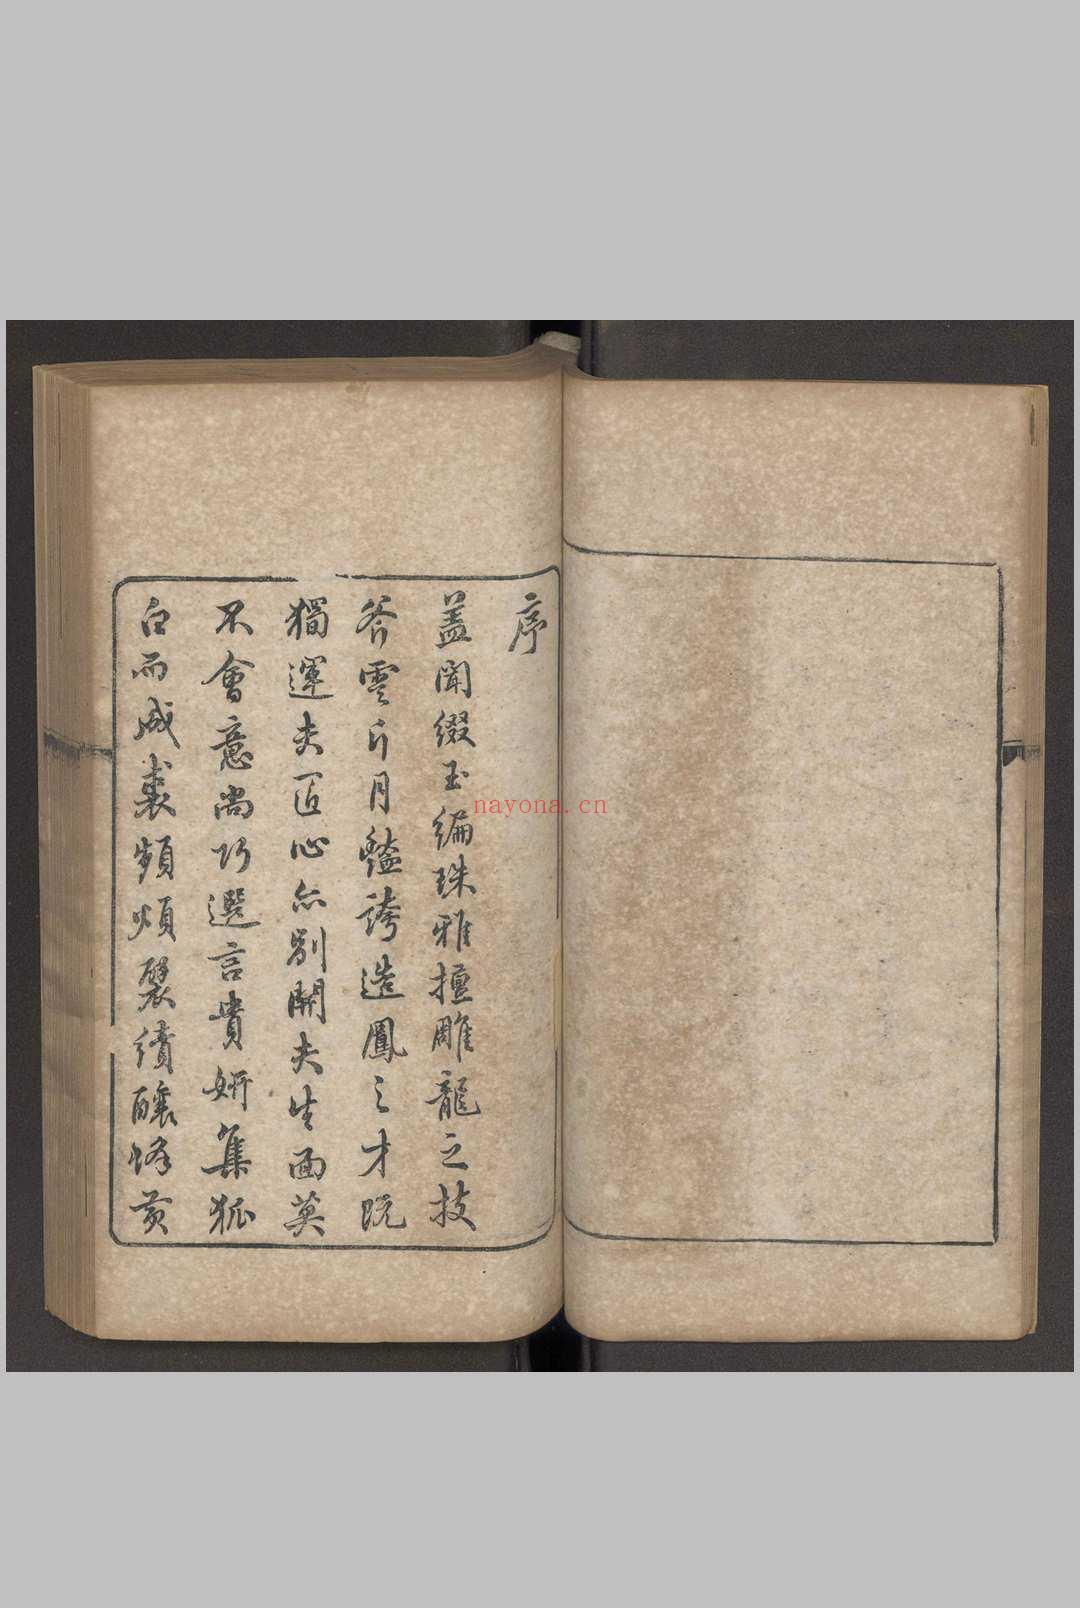 序
盖聞綴玉編珠雅擅雕龍之技
斧雲斤月豔誇造鳳之才既
獨運夫匠心亦別開夫生面莫
不會意尚巧選言貴妍集狐
白而成裘頻煩襞績釀蜂黃
nayona.cn